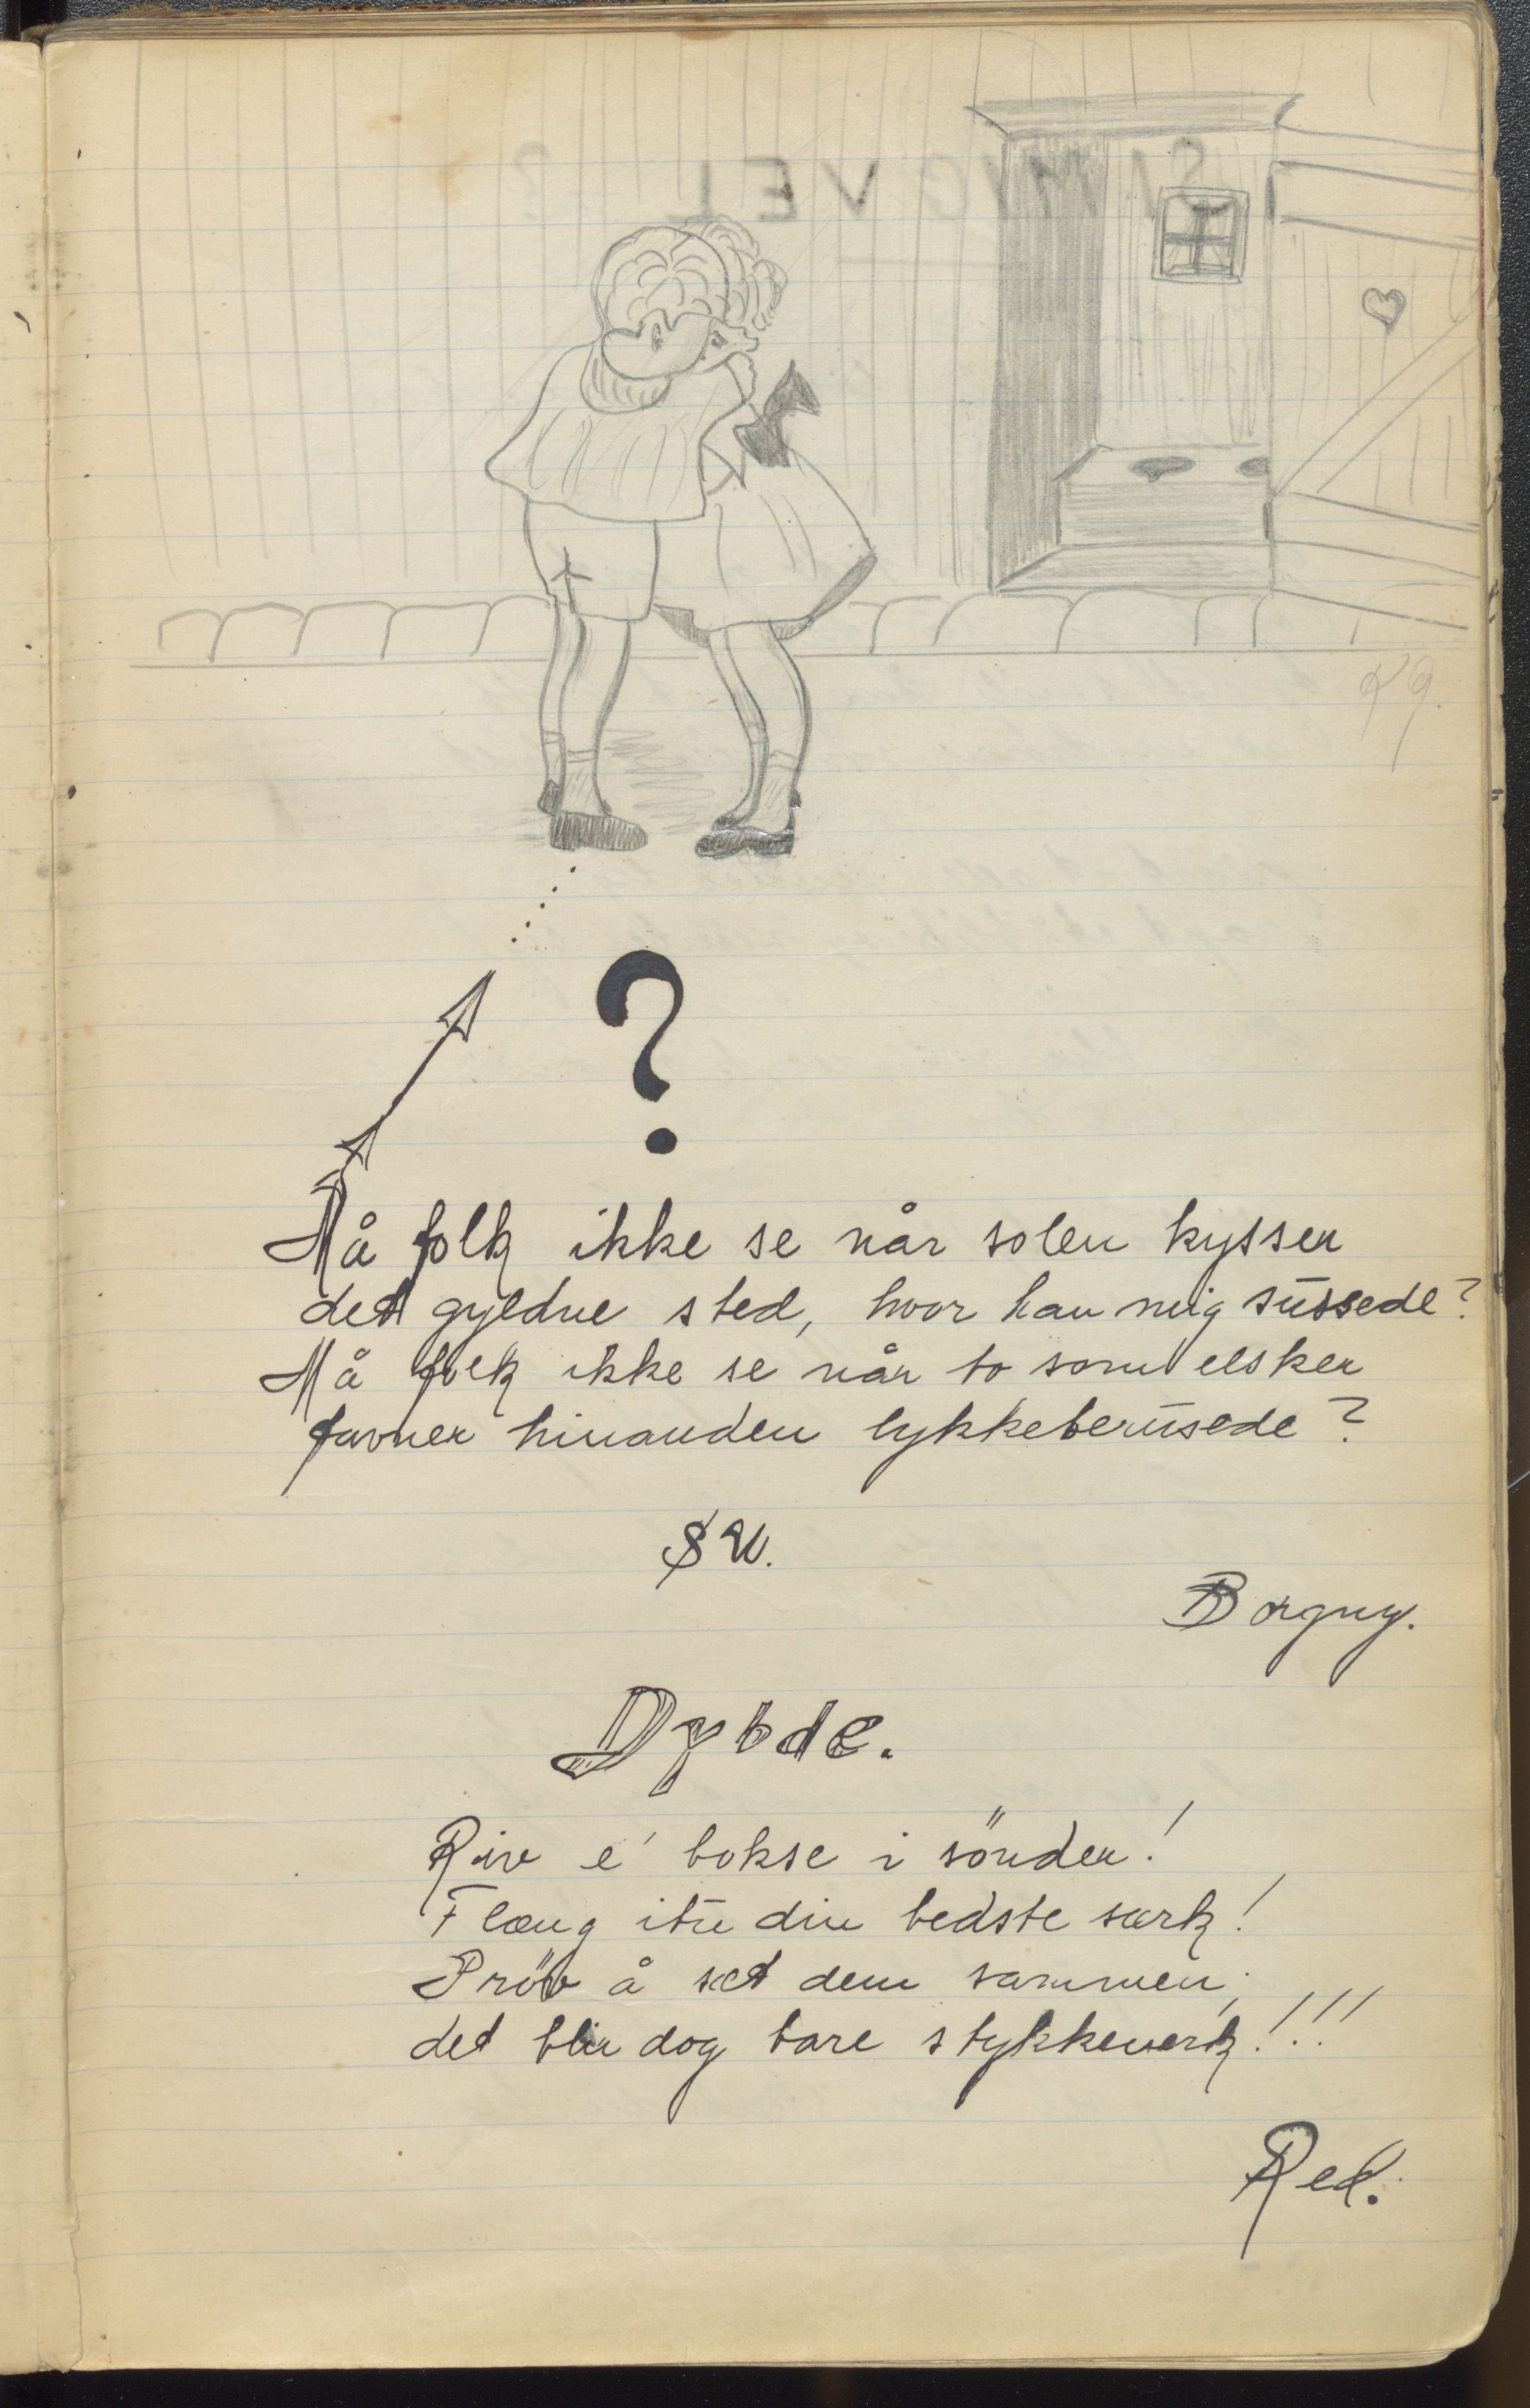 ?
Må folk ikke se når solen kysser
det gyldne sted, hvor han mig sussede?
Må folk ikke se når to som elsker
favner hinanden lykkeberusede?
SU.
Borgny.
Dybde.
Riv e' bokse i sönder!
Flæng itu din bedste særk!
Pröv å sæt dem sammen,
det blir dog bare stykkeverk!!!
Red.